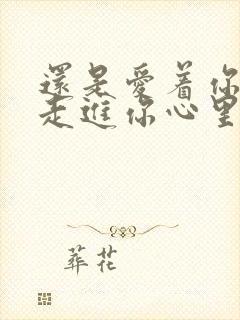 還是愛着你
走進你心里
葬花